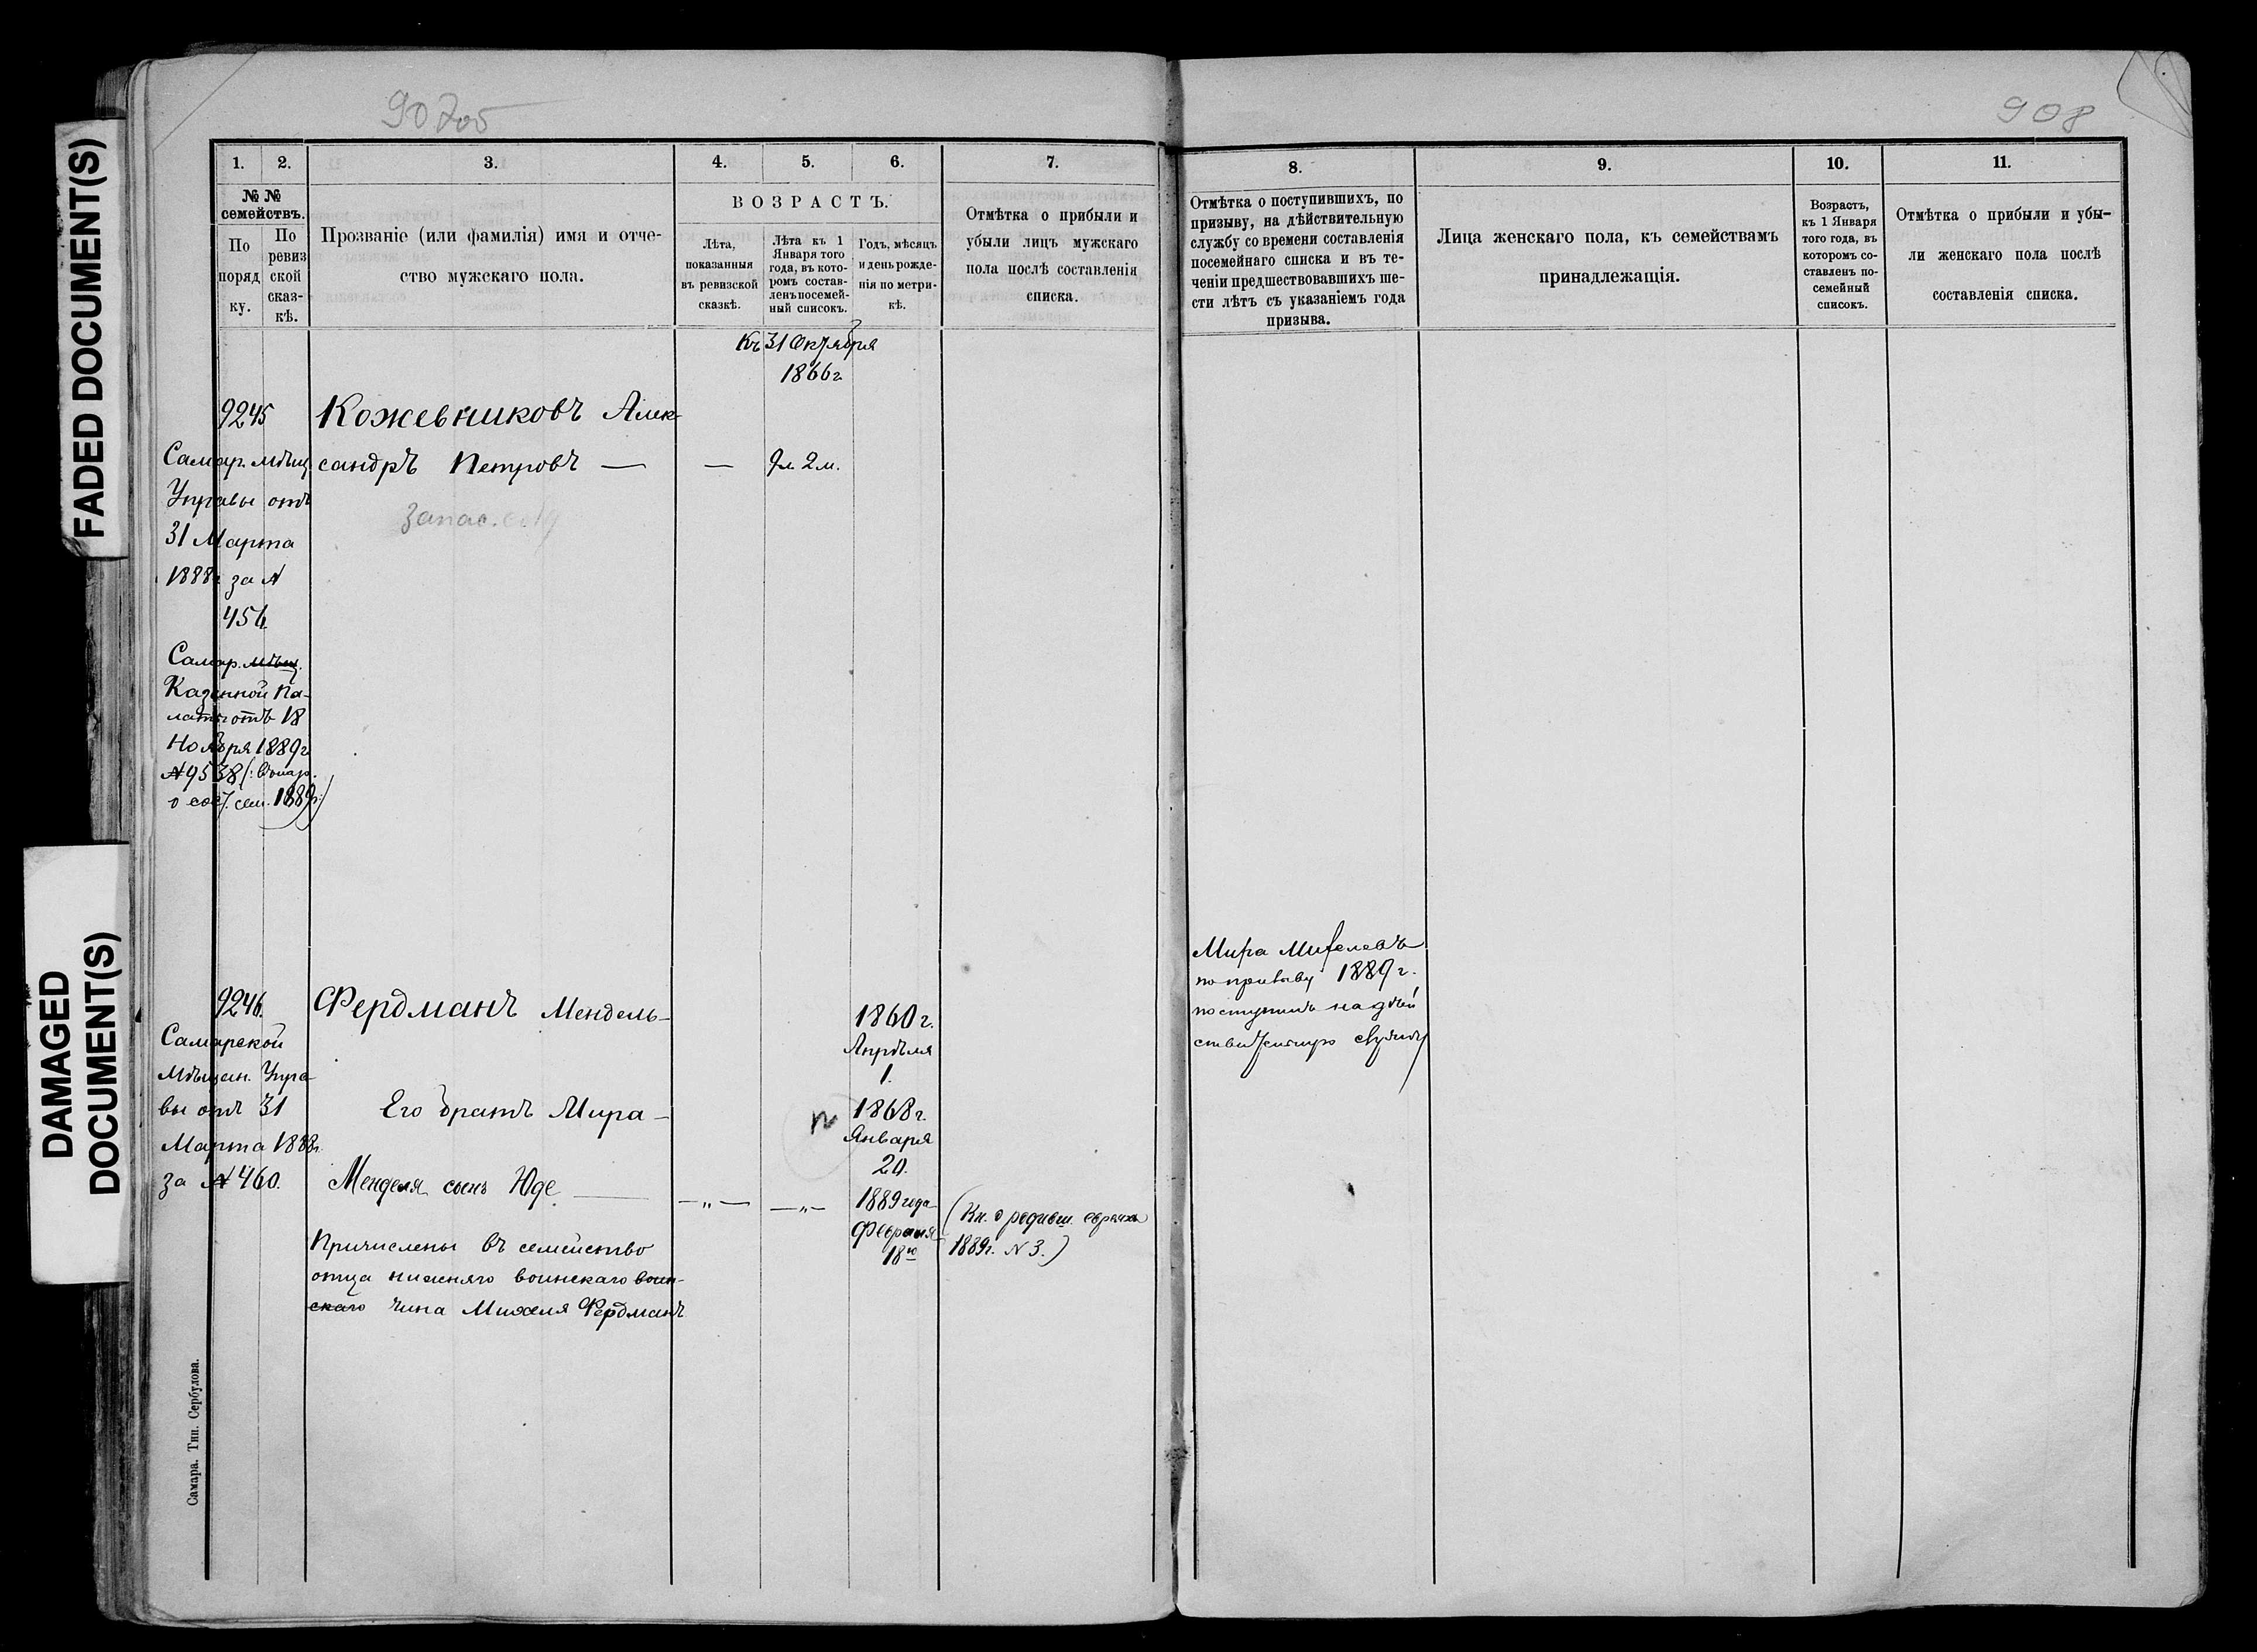 FADED DOCUMENT(S)
DAMAGED
DOCUMENT(S)
907об
908
1. 2. 3. 4. 5. 6. 7.
№ №
семействъ.
По
поряд
ку.
По
ревиз
ской
сказ-
кѣ.
Прозваніе (или фамилія) имя и отче-
ство мужскаго пола.
ВОЗРАСТЪ.
Лѣта,
показанныя
въ ревизской
сказкѣ.
Лѣта къ 1
Января того
года, въ кото-
ромъ состав-
ленъ посемей-
ный списокъ.
Годъ, мѣсяцъ
и день рожде-
нія по метри-
кѣ.
Отмѣтка о прибыли и
убыли лицъ мужскаго
пола послѣ составленія
списка.
Къ 31 Октября
1866г
9245
Самар. мѣщ.
Управы отъ
31 Марта
1888г за №
456
Самар. мѣщ.
Казенной Па-
латы отъ 18
Ноября 1889г
№9538
1889г:)
Кожевниковъ Алек-
сандръ Петровъ — — 9л. 2м.
запас.
9246.
Самарской
Мѣщан. Упра-
вы отъ 31
Марта 1888г.
за №460.
Фердманъ Мендель-
1860г.
Апрѣля
1.
Его братъ Мира-
1868г.
Января
20.
Менделя сынъ Юде — —"— —"—
1889 года
Февраля
18го
(Кн. о родивш. евреяхъ
1889г. №3.)
Причислены въ семейство
отца нижняго воинскаго воин-
скаго чина Михеля Фердманъ
Самара. Тип. Сербулова.
8. 9. 10. 11.
Отмѣтка о поступившихъ, по
призыву, на дѣйствительную
службу со времени составленія
посемейнаго списка и въ те-
ченіи предшествовавшихъ ше-
сти лѣтъ съ указаніемъ года
призыва.
Лица женскаго пола, къ семействамъ
принадлежащія.
Возрастъ,
къ 1 Января
того года, въ
которомъ со-
ставленъ по-
семейный
списокъ.
Отмѣтка о прибыли и убы-
ли женскаго пола послѣ
составленія списка.
Мира Михелевъ
по призыву 1889г.
поступилъ на дѣй
ствительную службу